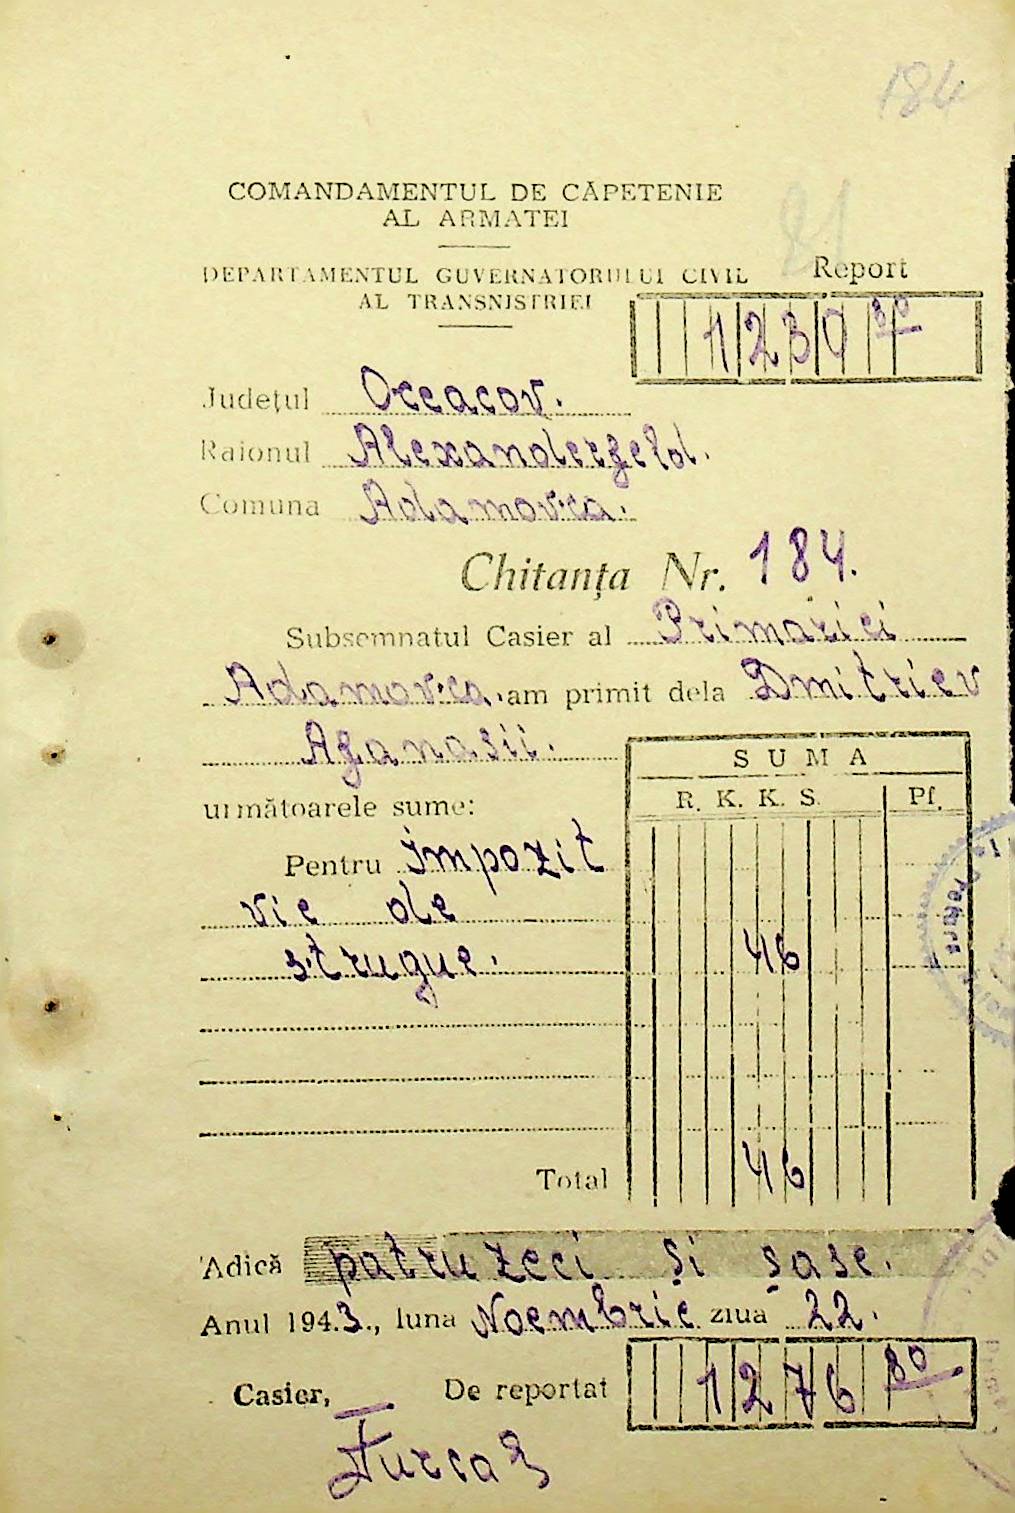 184
81
COMANDAMENTUL DE CĂPETENIE
AL ARMATEI
DEPARTAMENTUL GUVERNATORULUI CIVIL
AL TRANSNISTRIEI
Report
1230 80
Județul Oceacov.
Raionul Alexanderfeld.
Comuna Adamovca.
Chitanța Nr. 184.
Subsemnatul Casier al Primăriei
Adamovca. am primit dela Dmitriev
Afanasii.
următoarele sume:
SUMA
R. K. K. S. Pf.
Pentru impozit
vie de
strugue. 46
Total 46
Adică patruzeci și șase.
Anul 1943., luna Noembrie ziua 22.
Casier, De reportat 1276 80